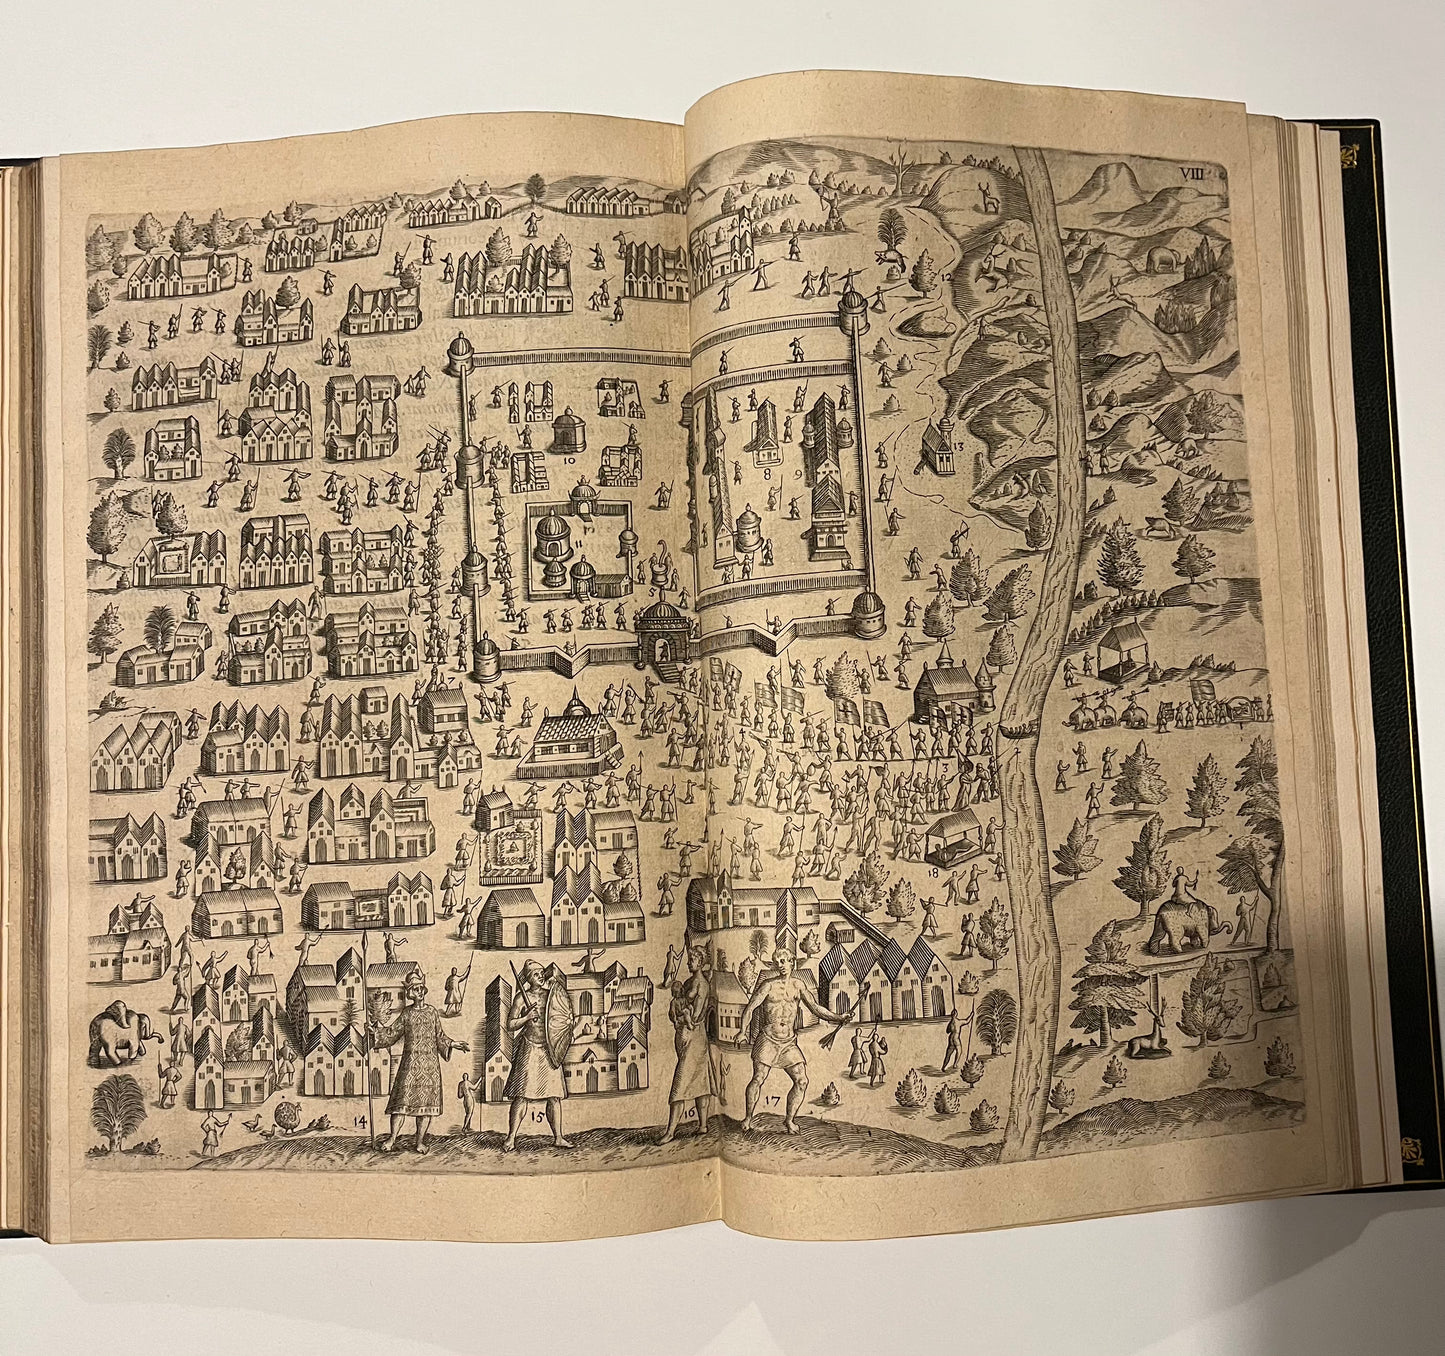 VIII
12
13
10
9
8
11
5
6
7
3
18
14
15
16
17